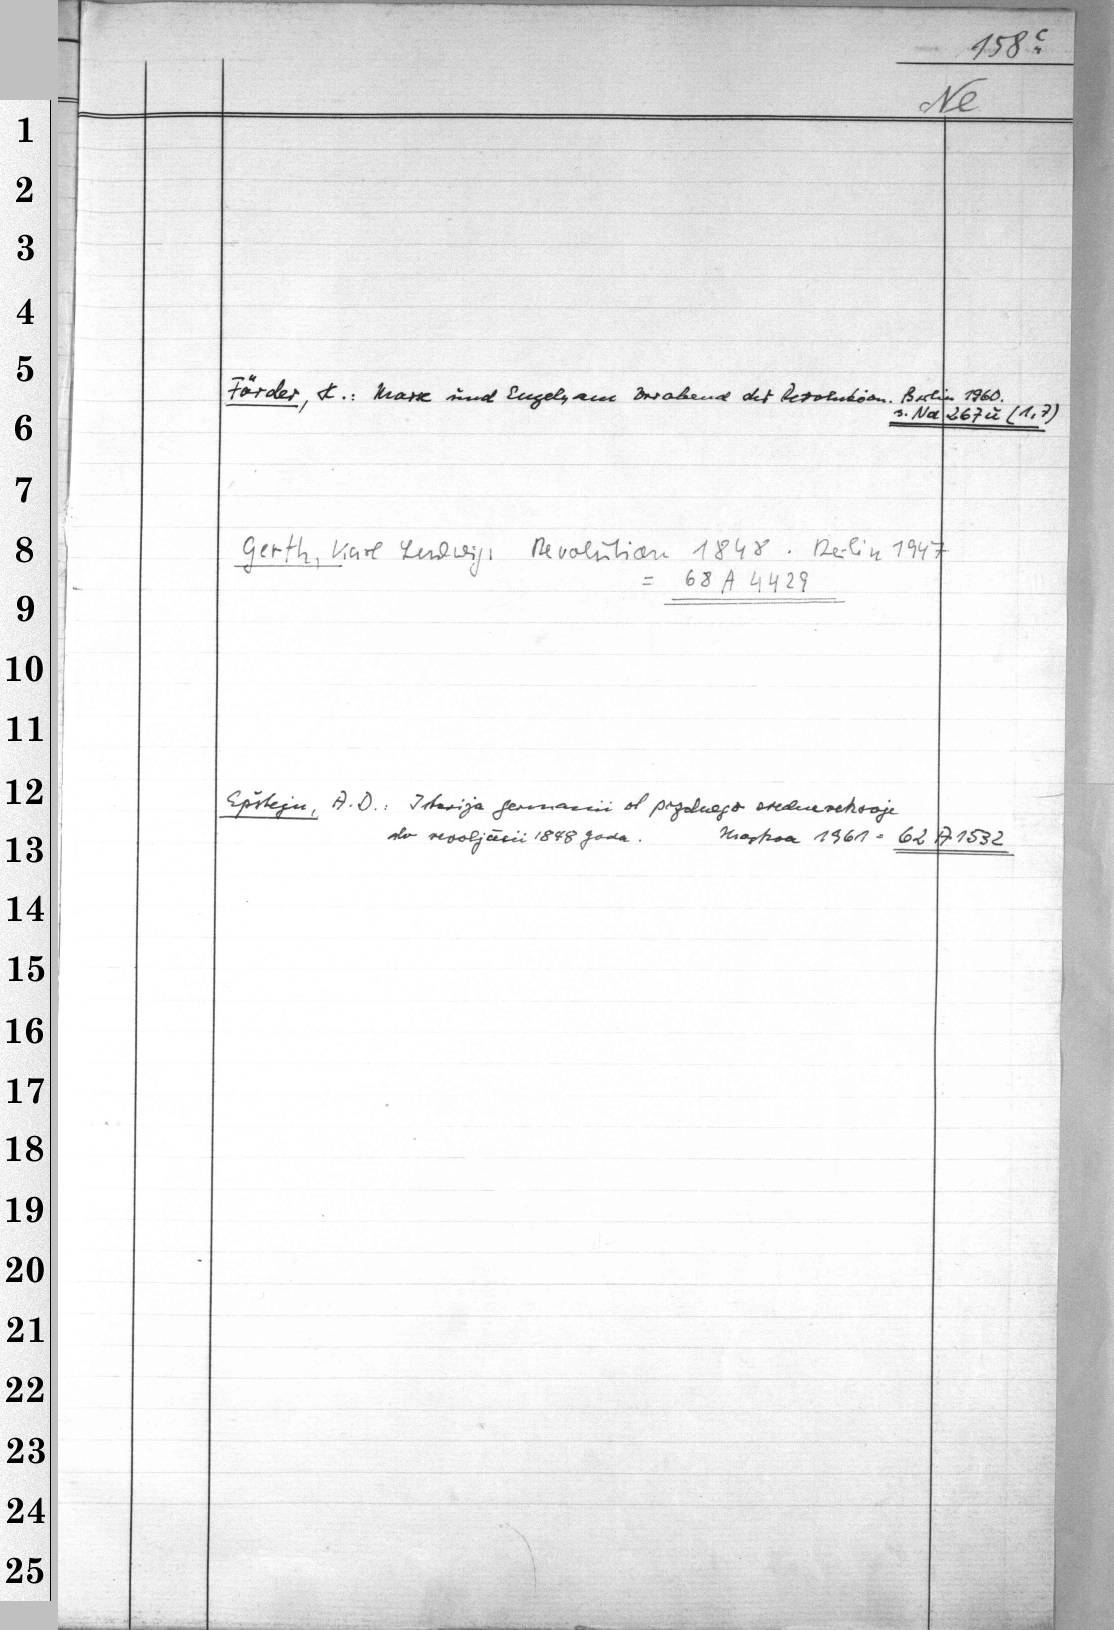 158 c r
Ne
1
2
3
4
5
Förder, H.: Marx und Engels am Vorabend der Revolution. Berlin 1960.
s. Nd 267 ü (1,7)
6
7
8
Gerth, Karl Ludwig: Revolution 1848. Berlin 1947
= 68 A 4429
9
10
11
12
Epštejn, A.D.: Istorija germanii ot pozdnego srednevekovja
do revoljucii 1848 goda. Moskva 1961 = 62 A 1532
13
14
15
16
17
18
19
20
21
22
23
24
25